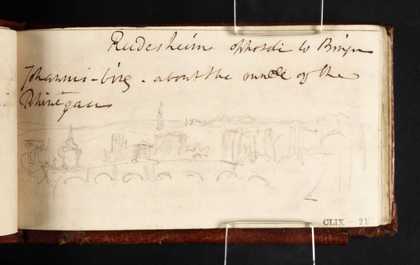 Rudesheim opposite to Bingen
Johannis-berg. about the middle of the
Rhinegau
CLIX - 21